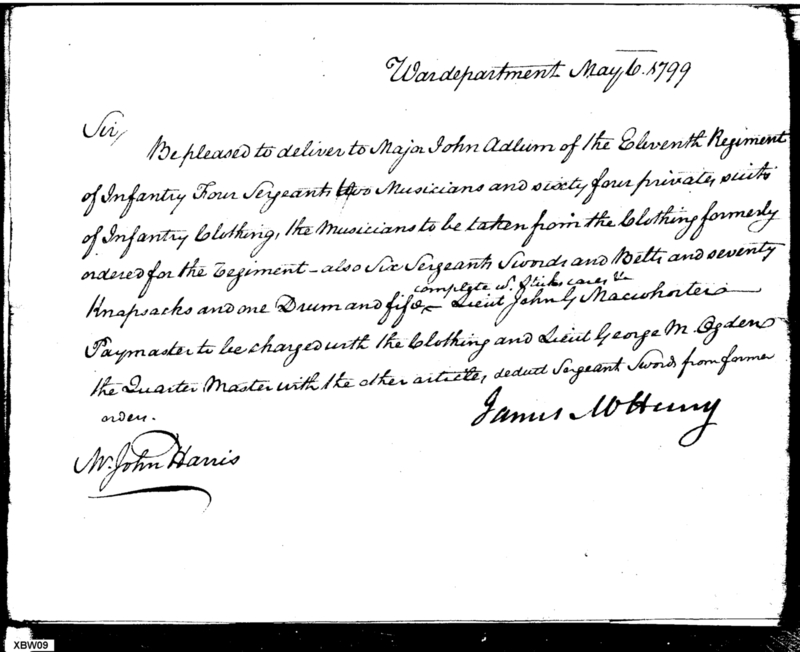 Wardepartment May 6. 1799
Sir,
Be pleased to deliver to Major John Adlum of the Eleventh Regiment
of Infantry Four Sergeants two Musicians and sixty four privates suits
of Infantry Clothing, the Musicians to be taken from the Clothing formerly
ordered for the Regiment – also Six Sergeants Swords and Belts and seventy
complete w. Sticks cases &c
Knapsacks and one Drum and fife – Lieut John G Macwhorter
Paymaster to be charged with the Clothing and Lieut George M. Ogden
the Quarter Master with the other articles, deduct Sergeant Swords from former
orders.
James McHenry
Mr. John Harris
XBW09